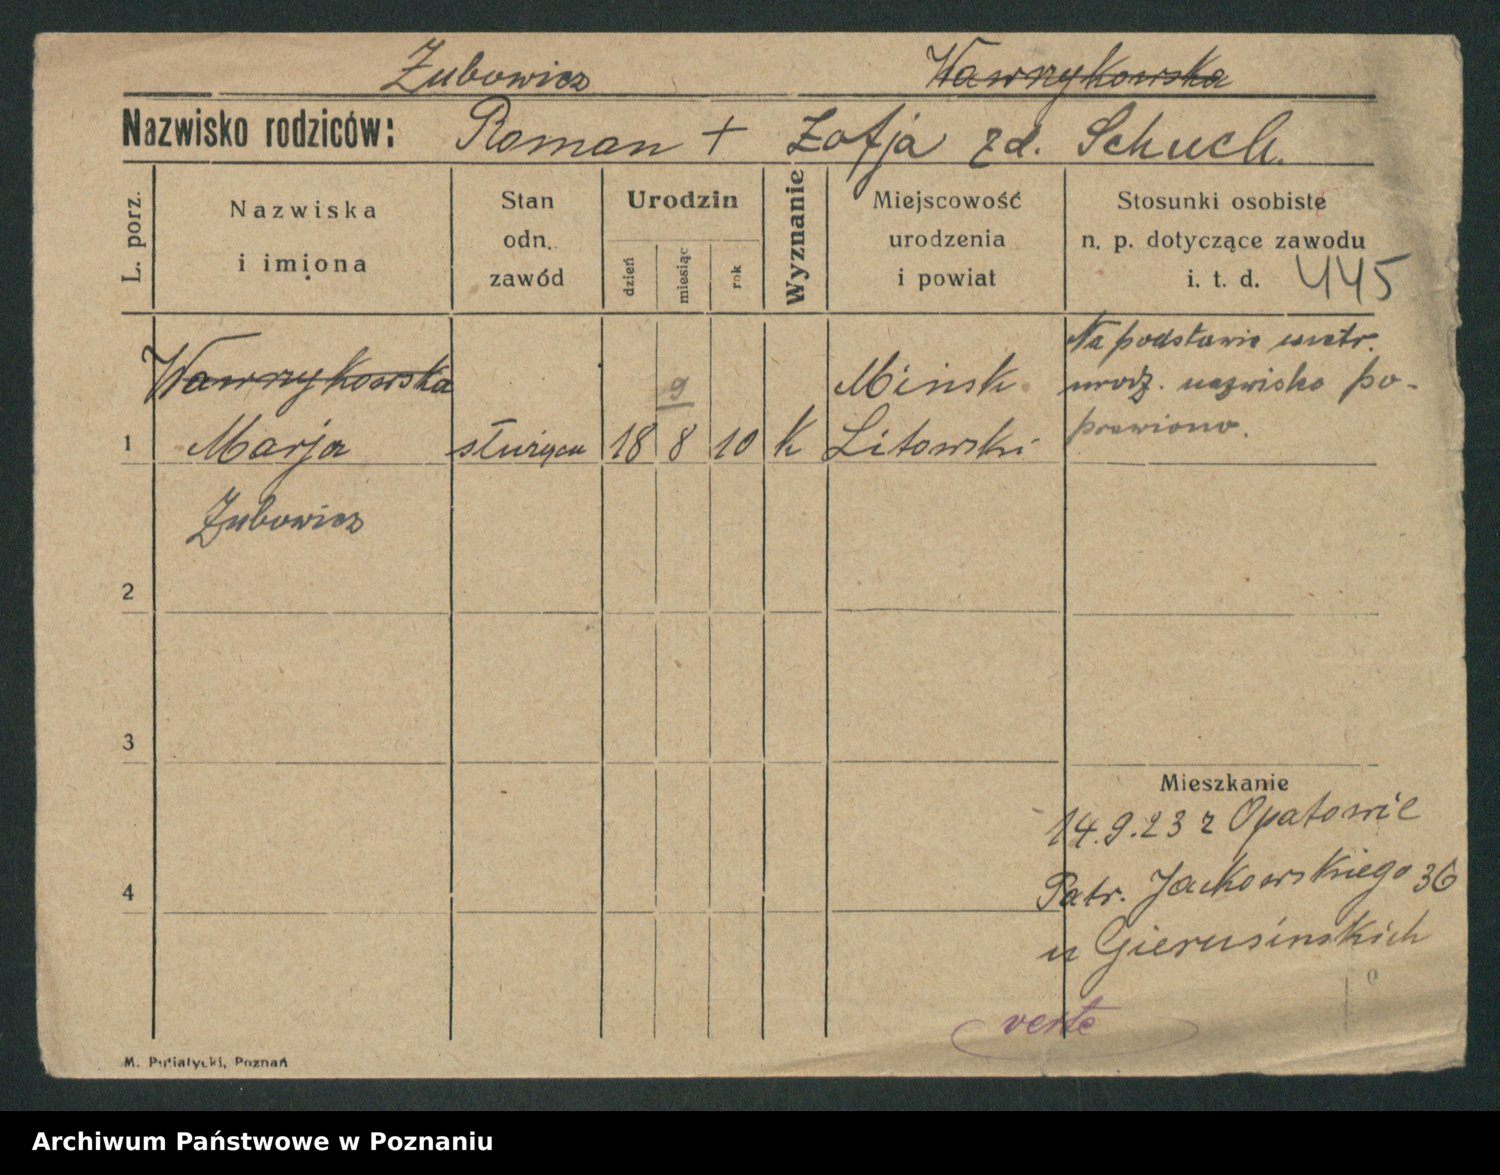 Żubowicz Wawrzykowska
Nazwisko rodziców: Roman + Zofja zd. Schuch.
L. porz.
Nazwiska
i imiona
Stan
odn.
zawód
Urodzin
dzień
miesiąc
rok
Wyznanie
Miejscowość
urodzenia
i powiat
Stosunki osobiste
n. p. dotyczące zawodu
i. t. d. 445
1
Wawrzykowska
Marja
Żubowicz
służąca
18
9
8
10
K
Mińsk
Litowski
Na podstawie metr.
urodz. nazwisko po-
prawiono.
2
3
4
Mieszkanie
14.9.23 z Opatowie
Patr. Jackowskiego 36
u Gierusińskich
verte
M. Putiatycki, Poznań
Archiwum Państwowe w Poznaniu